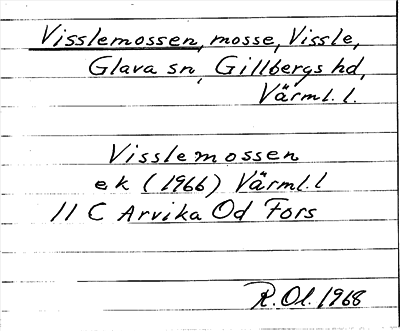 Visslemossen, mosse, Vissle,
Glava sn, Gillbergs hd,
Värml. l.
Visslemossen
ek (1966) Värml. l
11 C Arvika Od Fors
R. Ol. 1968